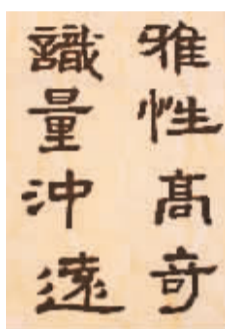 雅性髙奇
識量沖遠